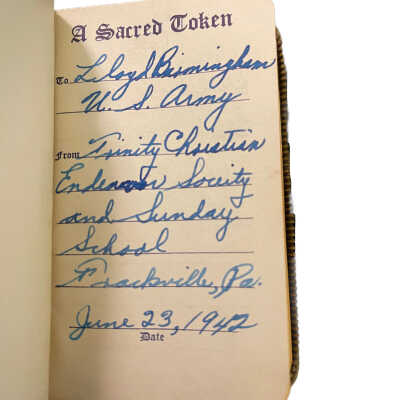 A Sacred Token
To Lloyd Birmingham
U. S. Army
From Trinity Christian
Endeavor Soceity
and Sunday
School
Frackville, Pa.
June 23, 1942
Date